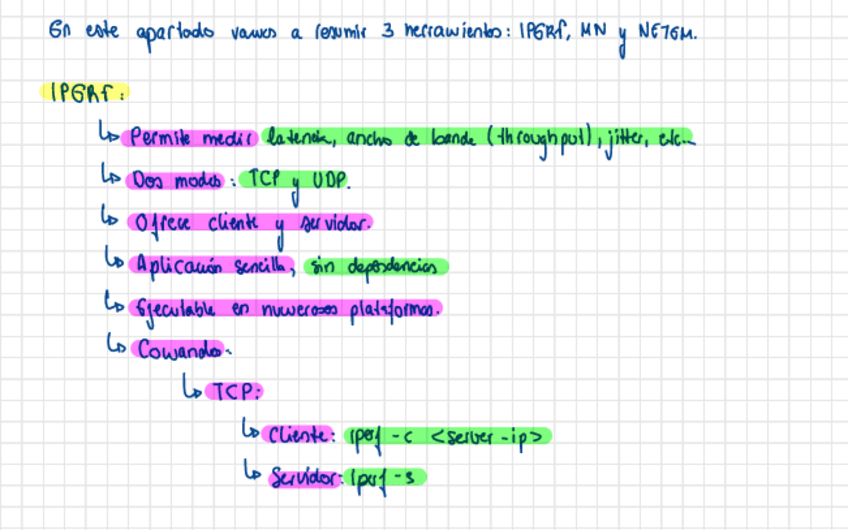 En este apartado vamos a resumir 3 herramientas: IPERF, MN y NETEM.
IPERF:
↳ Permite medir latencia, ancho de banda (throughput), jitter, etc...
↳ Dos modos: TCP y UDP.
↳ Ofrece cliente y servidor.
↳ Aplicación sencilla, sin dependencias
↳ Ejecutable en numerosos plataformas.
↳ Comandos.
↳ TCP:
↳ Cliente: iperf -c <server-ip>
↳ Servidor: iperf -s